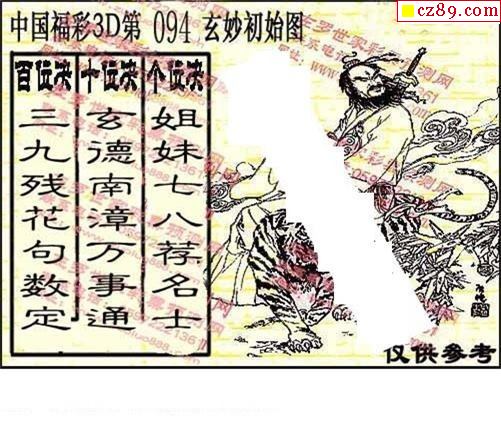 cz89.com
中国福彩3D第 094 玄妙初始图
百位决 十位决 个位决
三九残花句数定
玄德南漳万事通
姐妹七八荐名士
仅供参考